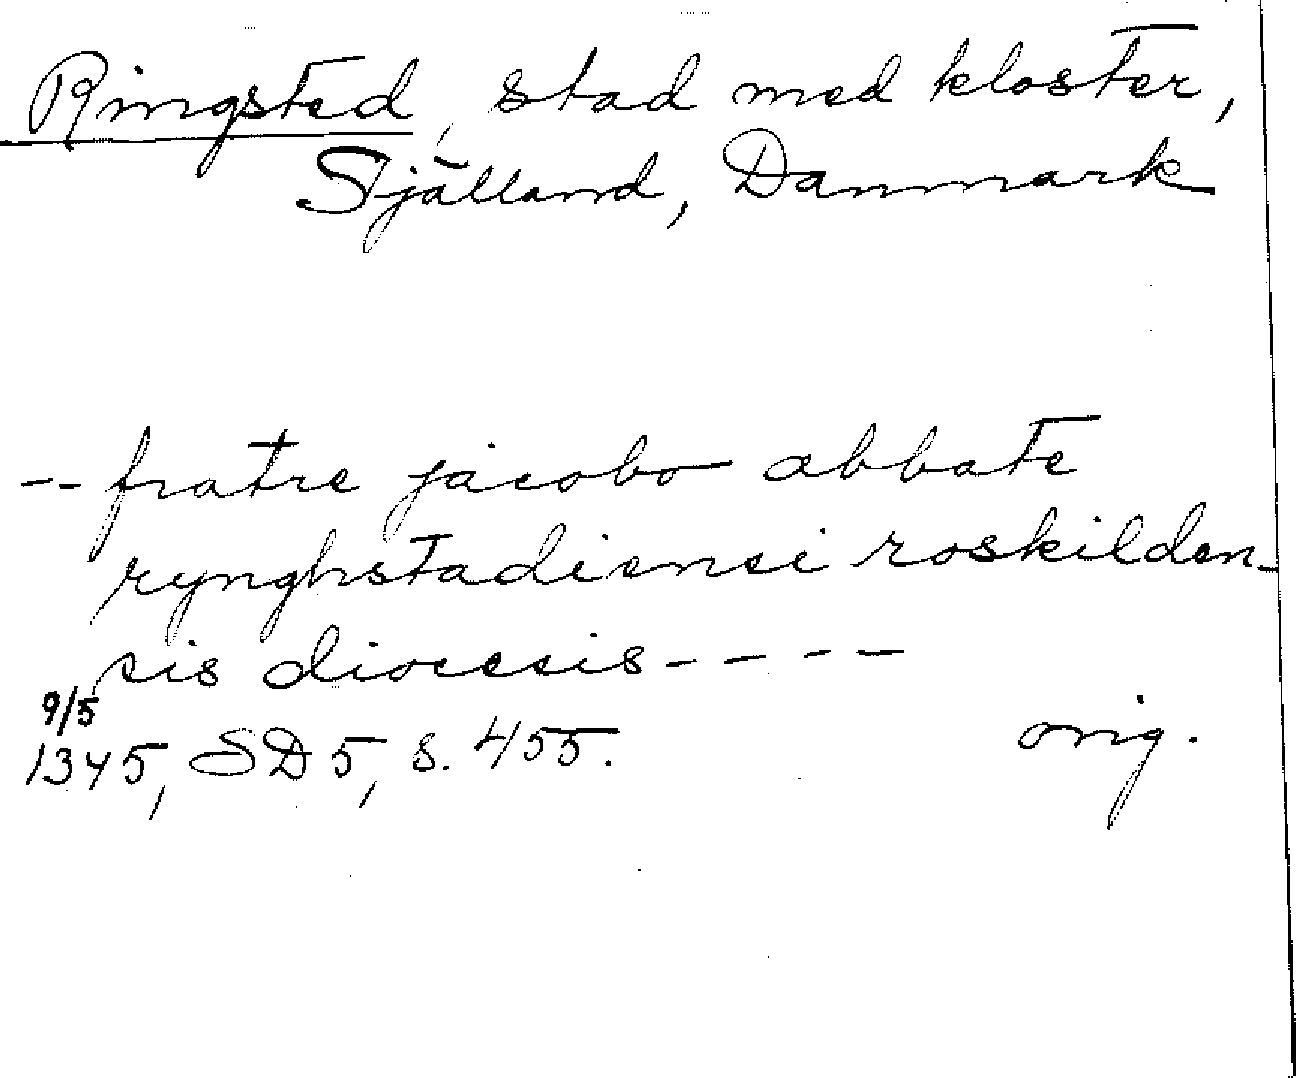 Ringsted, stad med kloster,
Själland, Danmark
-- fratre jacobo abbate
rynghstadiensi roskilden-
sis diocesis - - - -
9/5
1345, SD 5, s. 455. orig.